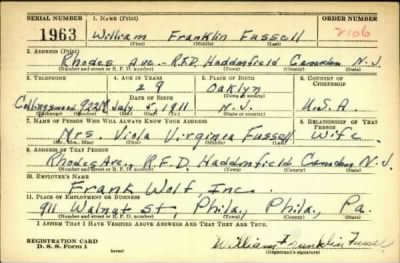 SERIAL NUMBER 1. NAME (Print) ORDER NUMBER
1963 William Franklin Fussell 2106
(First) (Middle) (Last)
2. ADDRESS (Print)
Rhodes Ave.- R.F.D. Haddonfield Camden N.J.
(Number and street or R. F. D. number) (Town) (County) (State)
3. TELEPHONE 4. AGE IN YEARS 5. PLACE OF BIRTH 6. COUNTRY OF CITIZENSHIP
29 Oaklyn
DATE OF BIRTH
Collingswood 922 July 5, 1911 N.J. U.S.A.
7. NAME OF PERSON WHO WILL ALWAYS KNOW YOUR ADDRESS 8. RELATIONSHIP OF THAT PERSON
Mrs. Viola Virginia Fussell Wife
9. ADDRESS OF THAT PERSON
Rhodes Ave., R.F.D. Haddonfield Camden N.J.
(Number and street or R. F. D. number) (Town) (County) (State)
10. EMPLOYER'S NAME
Frank Wolf Inc.
11. PLACE OF EMPLOYMENT OR BUSINESS
911 Walnut St, Phila, Phila, Pa.
(Number and street or R. F. D. number) (Town) (County) (State)
I AFFIRM THAT I HAVE VERIFIED ABOVE ANSWERS AND THAT THEY ARE TRUE.
REGISTRATION CARD
D. S. S. Form 1 (over) William Franklin Fussell
(Registrant's signature)